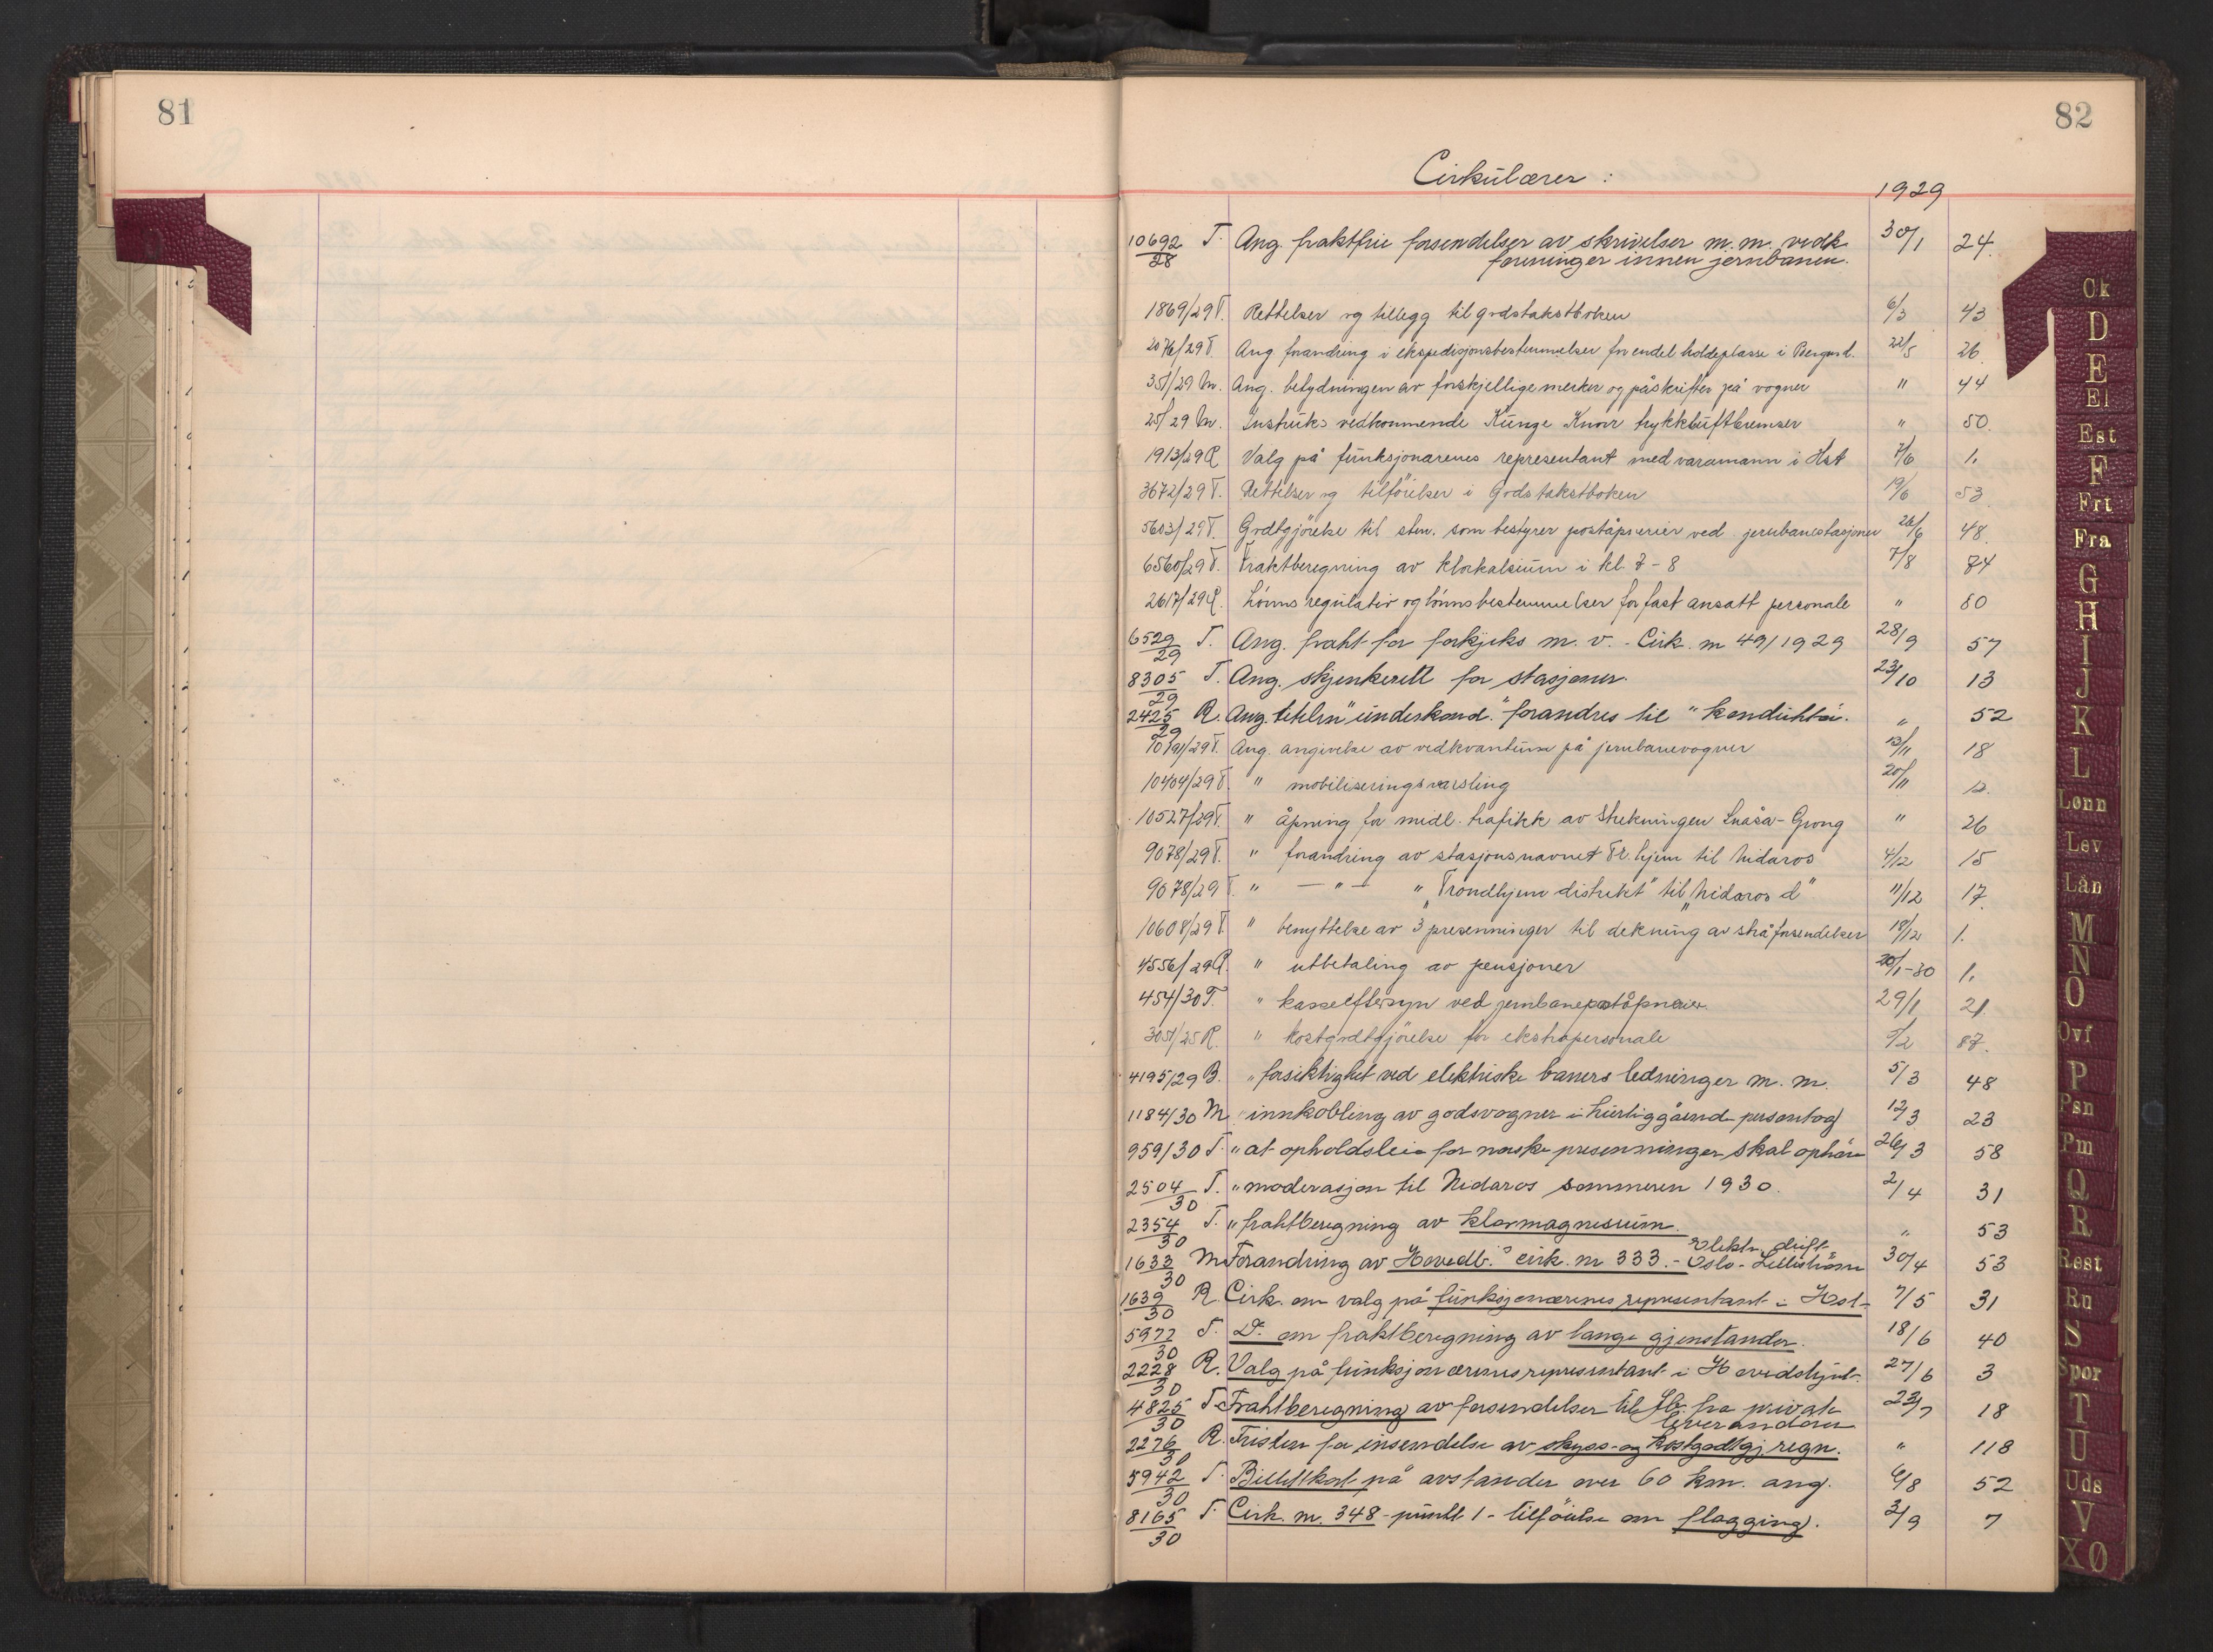 81
82
Cirkulærer :
1929
10692/28 T. Ang. fraktfrie forsendelser av skrivelser m.m. vedk. 30/1 24.
foreninger innen jernbanen.
1869/29 T. Rettelser og tillegg til godstakstboken 6/3 43
2076/29 T. Ang forandring i ekspedisjonsbestemmelser for endel holdeplasse i Bergen d. 22/5 26
351/29 M. Ang. betydningen av forskjellige merker og påskrifter på vogner " 44
25/29 M. Instruks vedkommende Kunze Knorr trykkluftbremser " 50.
1913/29 R Valg på funksjonærenes representant med varamann i Hst 7/6 1.
3672/29 T. Rettelser og tilföielser i Godstakstboken 19/6 53
5603/29 T. Godtgjörelse til stm. som bestyrer poståpnerier ved jernbanestasjoner 26/6 48.
6560/29 T. Fraktberegning av klorkalsium i kl. 7-8 7/8 84
2617/29 R. Lönnsregulativ og lönnsbestemmelser for fast ansatt personale " 80
6529/29 T. Ang. frakt for forkjeks m.v. - Cirk. nr 49/1929 28/9 57
8305/29 T. Ang. skjenkerett for stasjoner. 23/10 13
2425/29 R. Ang. titelen "underkond." forandres til "konduktör. " 52
10791/29 T. Ang. angivelse av vedkvantum på jernbanevogner 13/11 18
10404/29 T. " mobiliseringsvarsling 20/11 12.
10527/29 T. " åpning for midl. trafikk av Strekningen Snåsa-Grong " 26
9078/29 T. " forandring av stasjonsnavnet Tr.hjem til Nidaros 4/12 15
9078/29 T. " — " — " "Trondhjem distrikt" til "Nidaros d" 11/12 17.
10608/29 T. " benyttelse av 3 presenninger til dekning av stråforsendelser 18/12 1.
4556/29 R. " utbetaling av pensjoner 20/1-30 1.
454/30 T. " kasseeftersyn ved jernbanepoståpnerier. 29/1 21
305/25 R. " kostgodtgjörelse for ekstrapersonale 5/2 87.
4195/29 B. " forsiktighet ved elektriske baners ledninger m.m. 5/3 48
1184/30 M " innkobling av godsvogner i hurtiggående persontog 12/3 23
959/30 T. " at opholdsleie for norske presenninger skal ophöre 26/3 58
2504/30 T. " moderasjon til Nidaros sommeren 1930. 2/4 31
2354/30 T. " fraktberegning av klormagnesium. " 53
Elektr. drift
1633/30 M Forandring av Hovedb.s cirk. nr 333. - Oslo - Lilleström 30/4 53
1639/30 R. Cirk. om valg på funksjonærenes representant i Hst. 7/5 31
5972/30 T. Do. om fraktberegning av lange gjenstander. 18/6 40
2228/30 R. Valg på funksjonærenes representant i Hovedstyret. 27/6 3
4825/30 T. Fraktberegning av forsendelser til Jb. fra private 23/7 18
leverandörer
2276/30 R. Fristen for innsendelse av skyss- og kostgodtgj. regn. " 118
5942/30 T. Billettkort på avstander over 60 km. ang. 6/8 52
8165/30 T. Cirk. nr. 348 - punkt 1 - tilföielse om flagging. 3/9 7
Ok
D
E
El
Est
F
Frt
Fra
G
H
I
J
K
L
Lønn
Lev
Lån
M
N
O
Ovf
P
Psn
Pm
Q
R
Rest
Ru
S
Spor
T
U
Uds
V
XØ